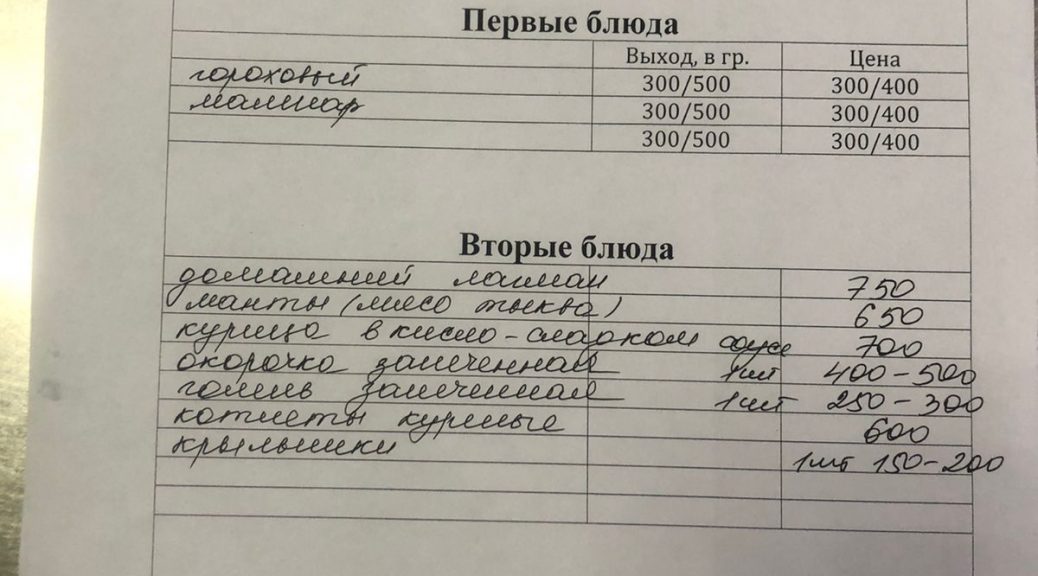 Первые блюда
Выход, в гр. Цена
гороховый 300/500 300/400
машпар 300/500 300/400
300/500 300/400
Вторые блюда
домашний лагман 750
манты (мясо тыква) 650
курица в кисло-сладком соусе 700
окорочка запеченная 1шт 400-500
голень запеченная 1шт 250-300
котлеты куриные 600
крылышки 1шт 150-200